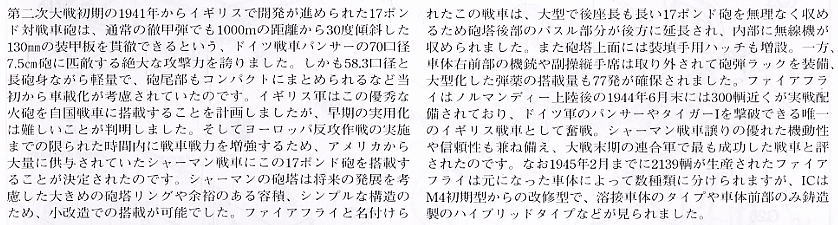 第二次大戦初期の1941年からイギリスで開発が進められた17ポン
ド対戦車砲は、通常の徹甲弾でも1000mの距離から30度傾斜した
130㎜の装甲板を貫徹できるという、ドイツ戦車パンサーの70口径
7.5㎝砲に匹敵する絶大な攻撃力を誇りました。しかも58.3口径と
長砲身ながら軽量で、砲尾部もコンパクトにまとめられるなど当
初から車載化が考慮されていたのです。イギリス軍はこの優秀な
火砲を自国戦車に搭載することを計画しましたが、早期の実用化
は難しいことが判明しました。そしてヨーロッパ反攻作戦の実施
までの限られた時間内に戦車戦力を増強するため、アメリカから
大量に供与されていたシャーマン戦車にこの17ポンド砲を搭載す
ることが決定されたのです。シャーマンの砲塔は将来の発展を考
慮した大きめの砲塔リングや余裕のある容積、シンプルな構造の
ため、小改造での搭載が可能でした。ファイアフライと名付けら
れたこの戦車は、大型で後座長も長い17ポンド砲を無理なく収め
るため砲塔後部のバスル部分が後方に延長され、内部に無線機が
収められました。また砲塔上面には装填手用ハッチも増設。一方、
車体右前部の機銃や副操縦手席は取り外されて砲弾ラックを装備、
大型化した弾薬の搭載量も77発が確保されました。ファイアフラ
イはノルマンディー上陸後の1944年6月末には300輌近くが実戦配
備されており、ドイツ軍のパンサーやタイガーIを撃破できる唯一
のイギリス戦車として奮戦。シャーマン戦車譲りの優れた機動性
や信頼性も兼ね備え、大戦末期の連合軍で最も成功した戦車と評
されたのです。なお1945年2月までに2139輌が生産されたファイア
フライは元になった車体によって数種類に分けられますが、ICは
M4初期型からの改修型で、溶接車体のタイプや車体前部のみ鋳造
製のハイブリッドタイプなどが見られました。